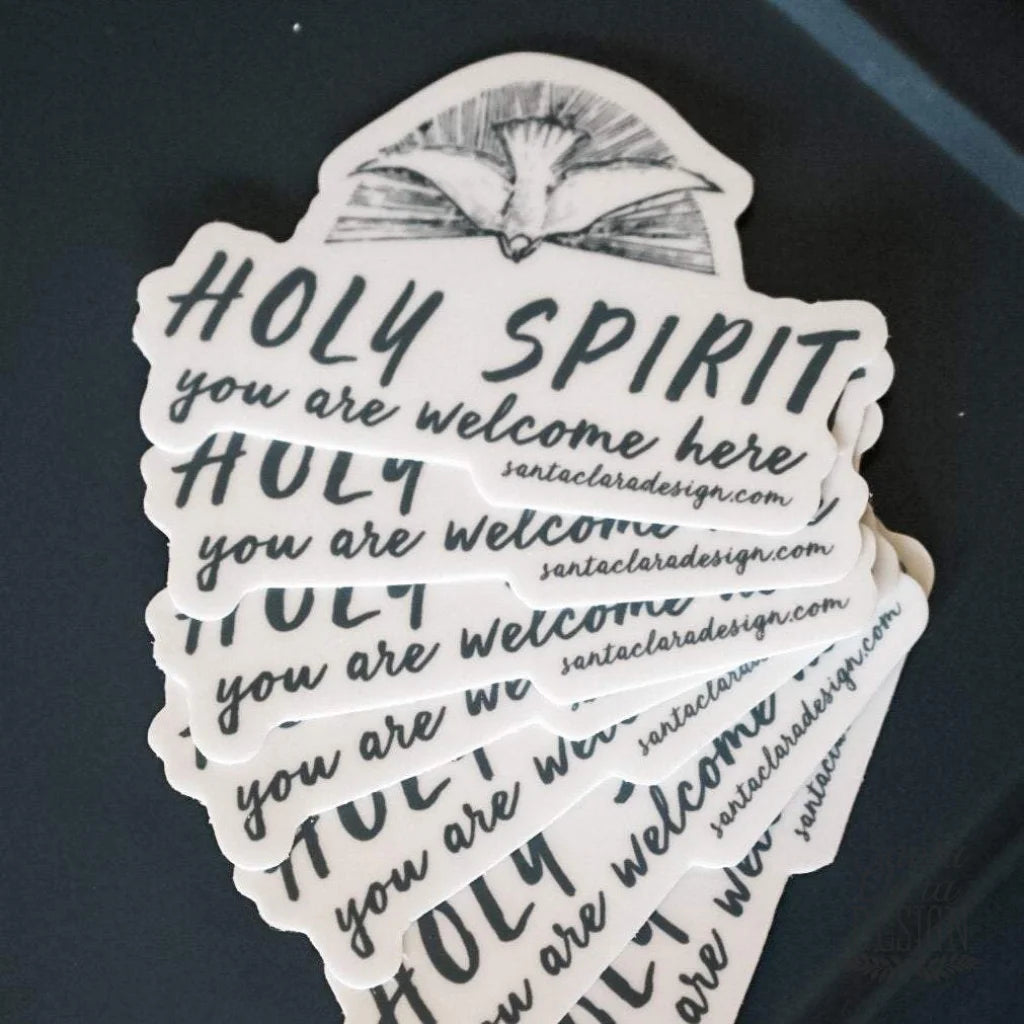 HOLY SPIRIT
you are welcome here
santaclaradesign.com
HOLY
you are welcome
santaclaradesign.com
HOLY
you are welcome
santaclaradesign.com
you are we
santaclara
HOLY
you are welcome
santaclaradesign.com
HOLY
you are wel
santacl
DESIGN